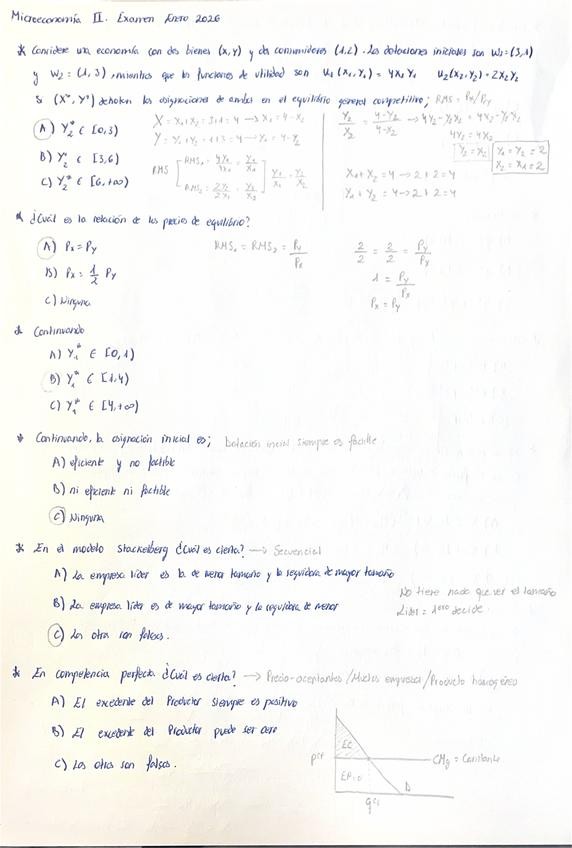 Microeconomía II. Examen Enero 2026
* Considere una economía con dos bienes (x,y) y dos consumidores (1,2). Las dotaciones iniciales son W₁=(3,1)
y W₂=(1,3), mientras que la funciones de utilidad son u₁(x₁,Y₁)=4X₁Y₁ u₂(x₂,Y₂)=2X₂Y₂
Si (X*,Y*) denotan las asignaciones de ambos en el equilibrio general competitivo; RMS = Px/Py
A) Y₂* ∈ [0,3)
B) Y₂* ∈ [3,6)
C) Y₂* ∈ [6,+∞)
X = X₁+X₂ = 3+1 = 4 → X₁ = 4-X₂
Y = Y₁+Y₂ = 1+3 = 4 → Y₁ = 4-Y₂
RMS
RMS₁ = 4Y₁/4X₁ = Y₁/X₁
RMS₂ = 2Y₂/2X₂ = Y₂/X₂
Y₁/X₁ = Y₂/X₂
Y₂/X₂ = 4-Y₂/4-X₂ → 4Y₂-Y₂X₂ = 4X₂-Y₂X₂
4Y₂ = 4X₂
Y₂ = X₂
Y₁ = Y₂ = 2
X₂ = X₁ = 2
X₁+X₂ = 4 → 2+2 = 4
Y₁+Y₂ = 4 → 2+2 = 4
* ¿Cuál es la relación de los precios de equilibrio?
A) Px = Py
B) Px = 1/2 Py
C) Ninguna
RMS₁ = RMS₂ = Py/Px
2/2 = 2/2 = Py/Px
1 = Py/Px
Px = Py
* Continuando
A) Y₁* ∈ [0,1)
B) Y₁* ∈ [1,4)
C) Y₁* ∈ [4,+∞)
* Continuando, la asignación inicial es; Dotación inicial siempre es factible
A) eficiente y no factible
B) ni eficient ni factible
C) Ninguna
* En el modelo Stackelberg ¿Cuál es cierta? → Secuencial
A) La empresa líder es la de menor tamaño y la seguidora de mayor tamaño
B) La empresa líder es de mayor tamaño y la seguidora de menor
C) Las otras son falsas.
No tiene nada que ver el tamaño
Líder = 1ero decide.
* En competencia perfecta ¿Cuál es cierta? → Precio-aceptantes / Muchas empresas / Producto homogéneo
A) El excedente del Productor siempre es positivo
B) El excedente del Productor puede ser cero
C) Las otras son falsas.
EC
pcp
CMg = Constante
EP=0
D
qcp